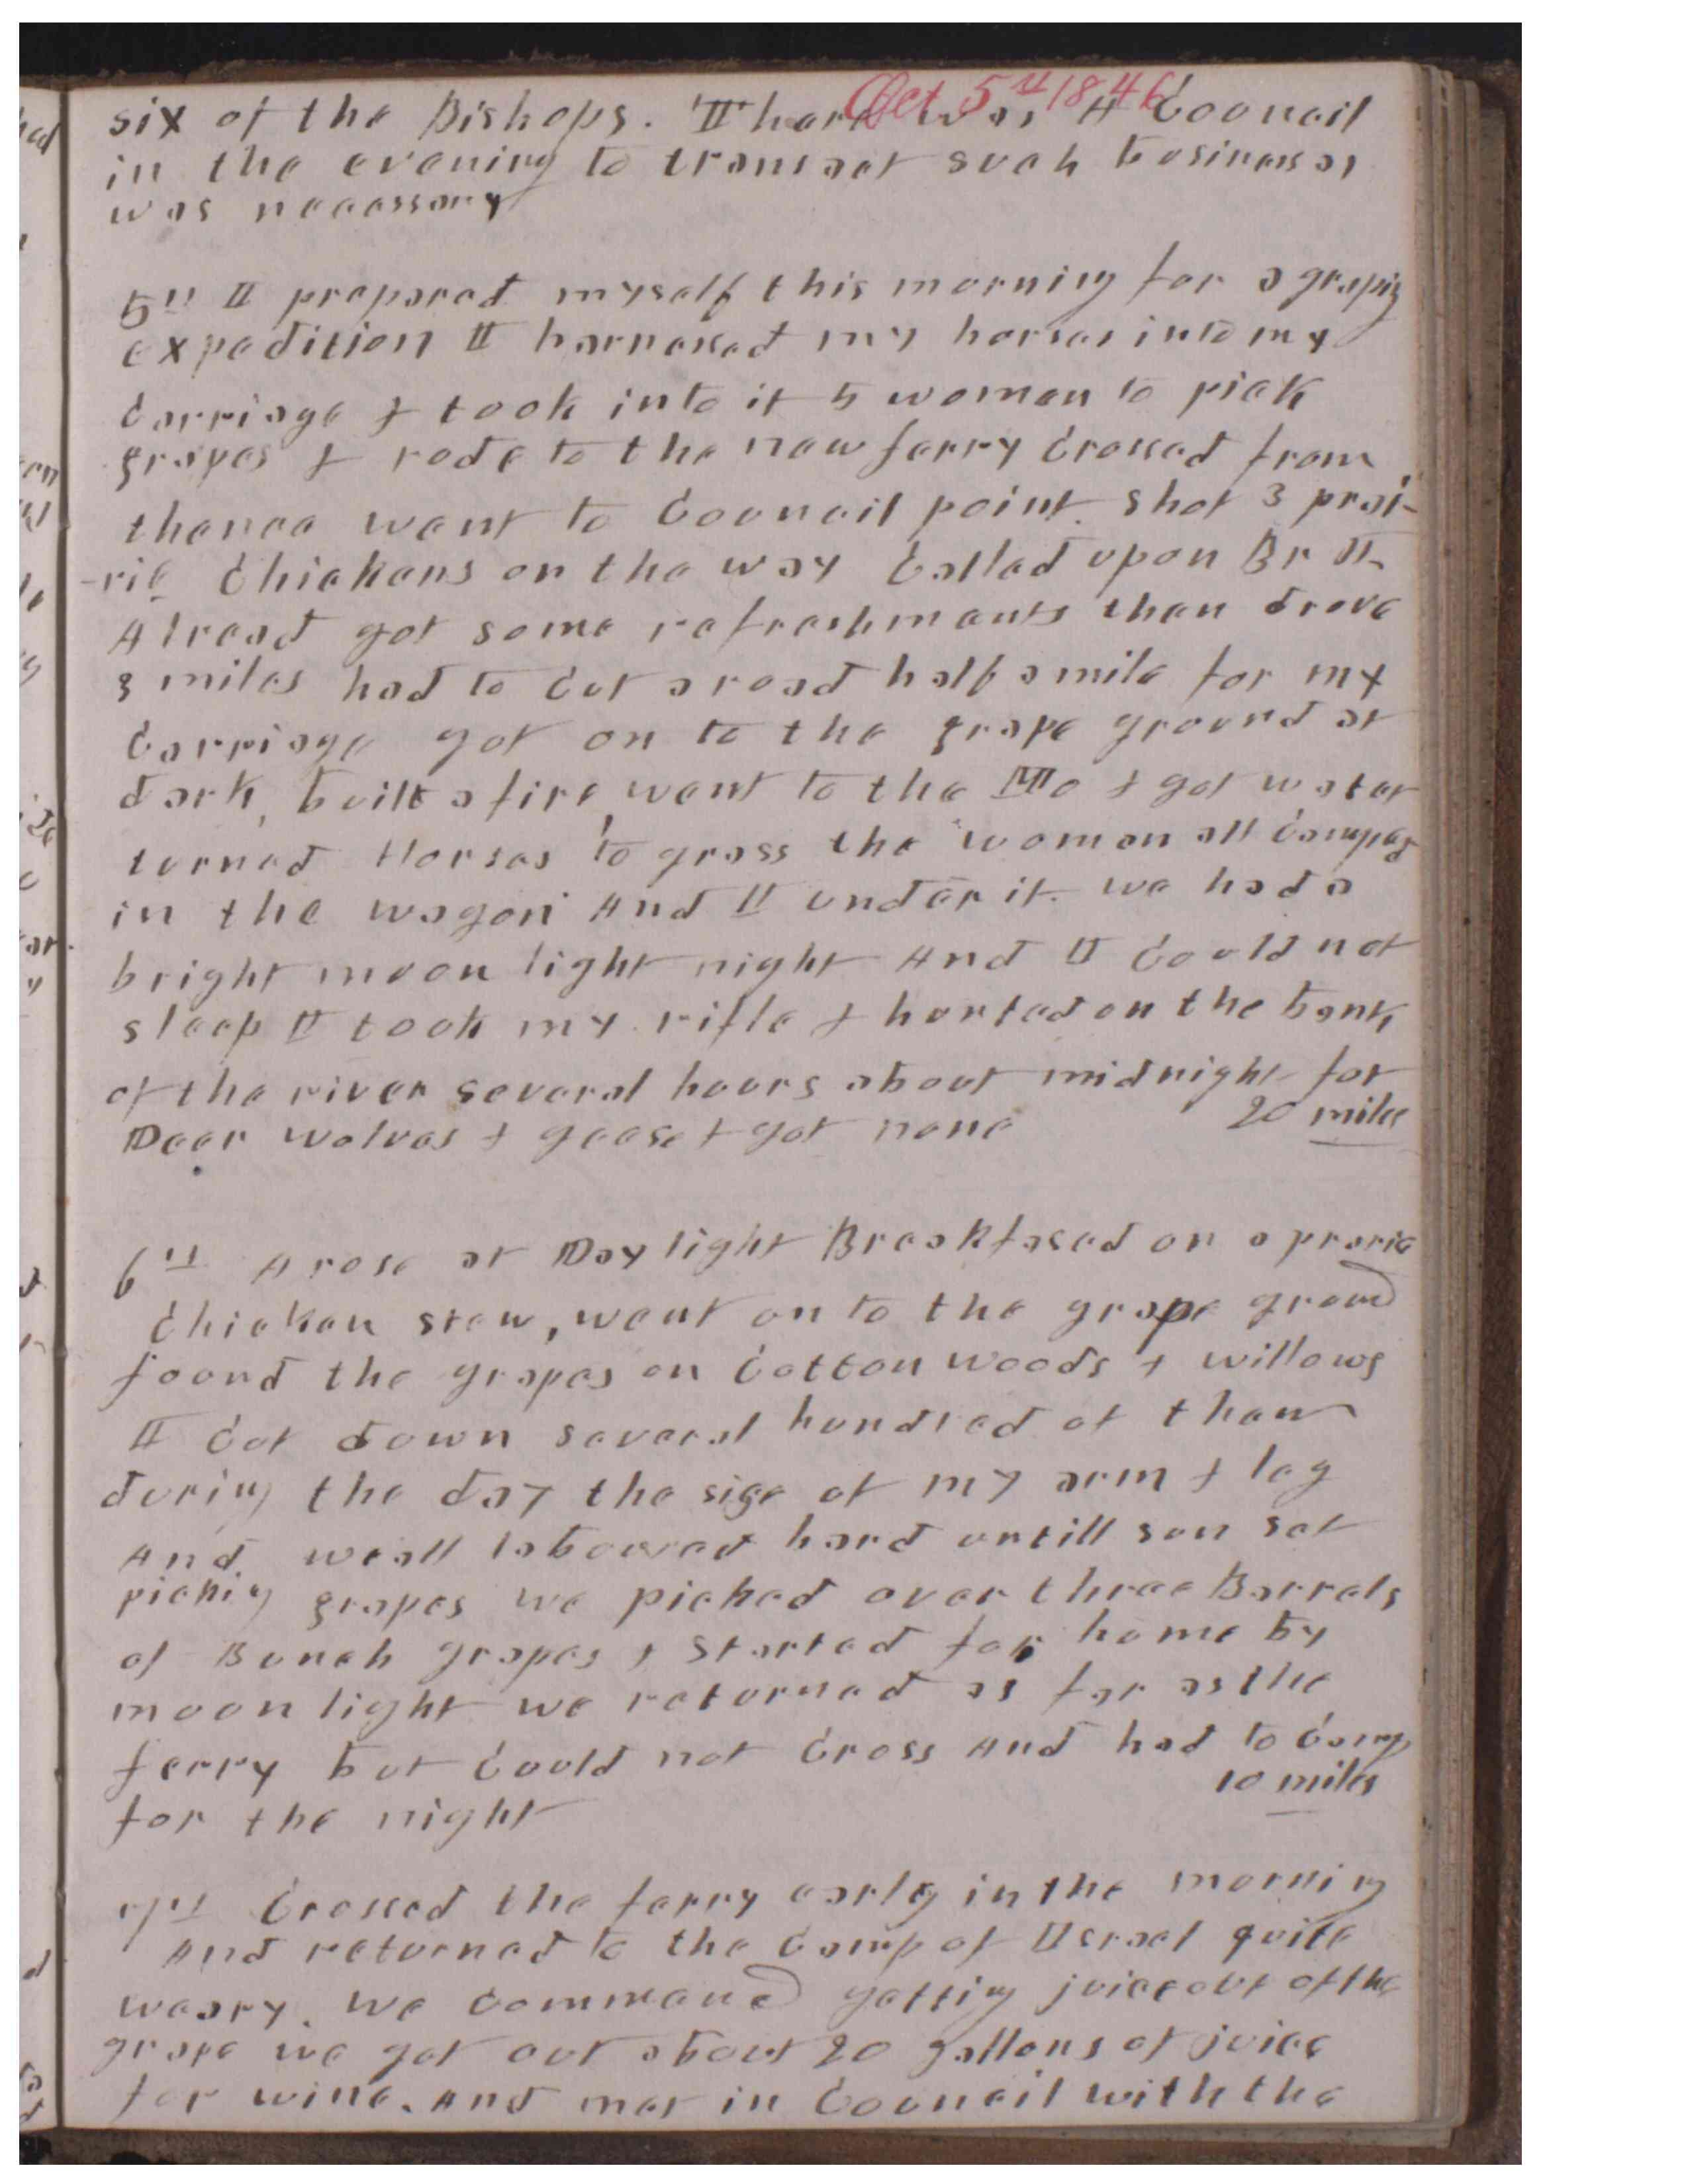 Oct 5th 1846
six of the Bishops. Thare was A Council
in the evening to transact such business as
was necessary
5th I prepared myself this morning for a graping
expedition I harnessed my horses into my
Carriage & took into it 5 women to pick
grapes & rode to the new ferry Crossed from
thence went to Council point. Shot 3 prai-
-rie Chickens on the way Called upon Br
Alread got some refreshments then drove
8 miles had to Cut a road half a mile for my
Carriage got on to the grape ground at
dark, built a fire, went to the Mo & got water
turned Horses to grass the women all Camped
in the wagon And I under it. we had a
bright moon light night And I Could not
sleep I took my rifle & hunted on the bank
of the river several hours about midnight for
Deer wolves & geese & got none 20 miles
6th Arose at Day light Breakfased on a prarie
Chicken stew, went on to the grape ground
found the grapes on Cotton woods & willows
I Cut down several hundred of them
during the day the size of my arm & leg
And we all laboured hard untill sun set
picking grapes we picked over three Barrels
of Bunch grapes & Started for home by
moon light we returned as far as the
ferry but Could not Cross And had to Camp
for the night 10 miles
7th Crossed the ferry early in the morning
And returned to the Camp of Israel quite
weary. We Commenced getting juice out of the
grape we got out about 20 gallons of juice
for wine. And met in Council with the